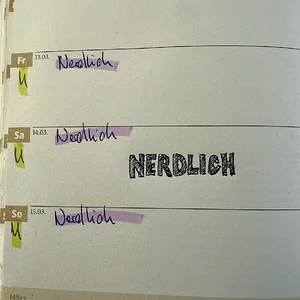 Fr 13.03. Nerdlich
U
Sa 14.03. Nerdlich
U
NERDLICH
So 15.03. Nerdlich
U
März